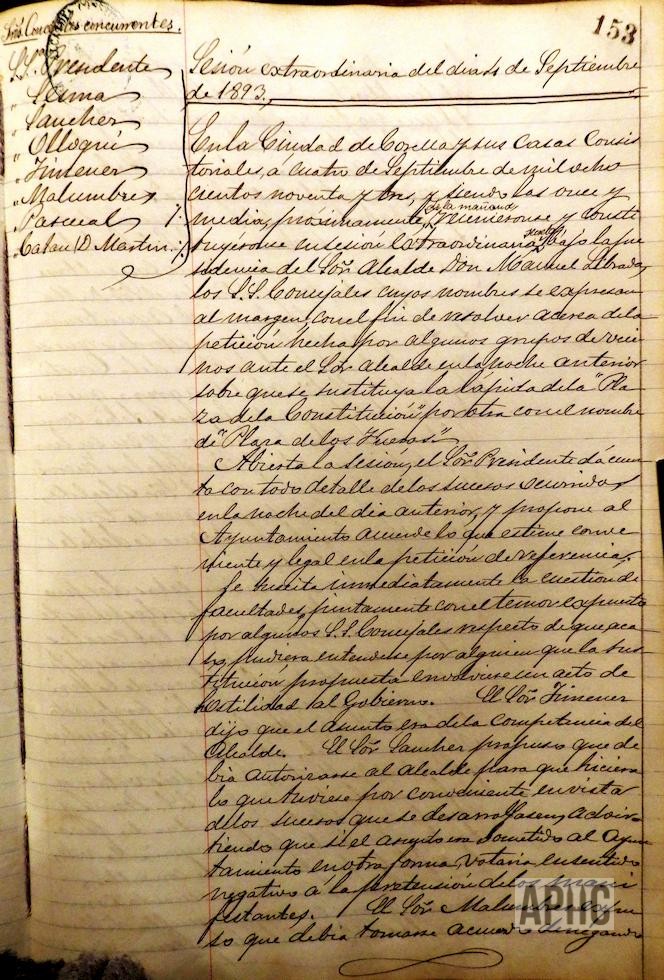 153
Srs. Concejales concurrentes.
Sr. Presidente
" Sesma
" Sanchez
" Olloqui
" Jimenez
" Malumbres
" Pascual
" Catan D. Martin
Sesión extraordinaria del dia 4 de Septiembre
de 1893.
En la Ciudad de Corella y sus Casas Consis
toriales, á cuatro de Septiembre de mil ocho
cientos noventa y tres, y siendo las once y
media, próximamente, de la mañana, reunieronse y consti
tuyeronse en sesión extraordinaria, bajo la pre
sidencia del Sor. Alcalde Don Manuel Librada,
los S.S. Concejales cuyos nombres se expresan
al margen, con el fin de resolver acerca de la
petición hecha por algunos grupos de veci
nos ante el Sor. Alcalde en la noche anterior
sobre que se sustituya la lápida de la "Pla
za de la Constitución" por otra con el nombre
de "Plaza de los Fueros."
Abierta la sesión, el Sor. Presidente dá cuen
ta con todo detalle de los sucesos ocurridos
en la noche del dia anterior, y propone al
Ayuntamiento acuerde lo que estime conve
niente y legal en la petición de referencia.
Se suscita inmediatamente la cuestión de
facultades, juntamente con el temor expuesto
por algunos S.S. Concejales respecto de que aca
so, pudiera entenderse por alguien que la sus
titución propuesta envolviese un acto de
hostilidad al Gobierno. El Sor. Jimenez
dijo que el asunto era de la competencia del
Alcalde. El Sor. Sanchez propuso que de
bia autorizarse al Alcalde para que hiciera
lo que tuviese por conveniente en vista
de los sucesos que se desarrollasen, advir
tiendo que si el asunto era sometido al Ayun
tamiento en otra forma, votaria en sentido
negativo á la pretensión de los mani
festantes. El Sor. Malumbres expu
so que debia tomarse acuerdo denegando
APHC